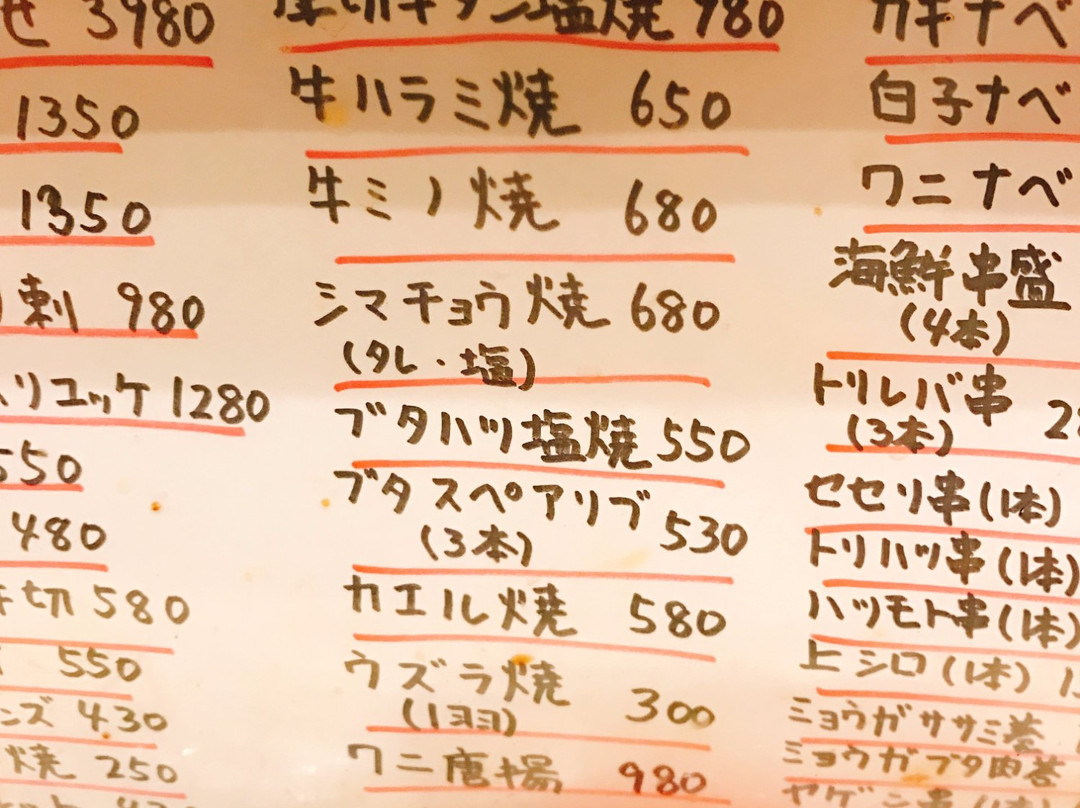 せ 3980
1350
1350
刺 980
リユッケ 1280
550
480
切 580
550
ンズ 430
焼 250
厚切牛タン塩焼 980
牛ハラミ焼 650
牛ミノ焼 680
シマチョウ焼 680
(タレ・塩)
ブタハツ塩焼 550
ブタスペアリブ 530
(3本)
カエル焼 580
ウズラ焼 300
(1ヨヨ)
ワニ唐揚 980
カキナベ
白子ナベ
ワニナベ
海鮮串盛
(4本)
トリレバ串
(3本)
セセリ串(1本)
トリハツ串(1本)
ハツモト串(1本)
上シロ(1本)
ミョウガササミ巻
ミョウガブタ肉巻
ヤゲン串